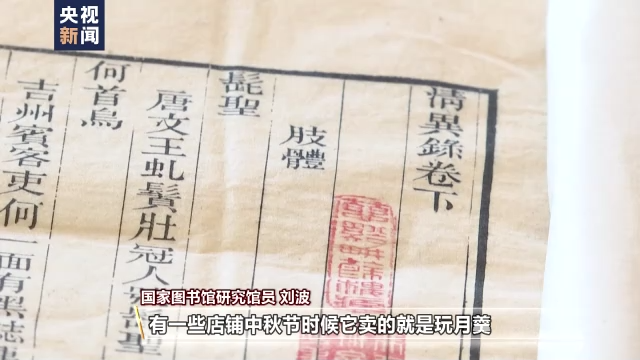 央视
新闻
清異錄卷下
肢體
髭聖
唐文王虬鬚壯冠人
何首烏
吉州賓客吏何
面有黑誌
国家图书馆研究馆员 刘波
有一些店铺中秋节时候它卖的就是玩月羹